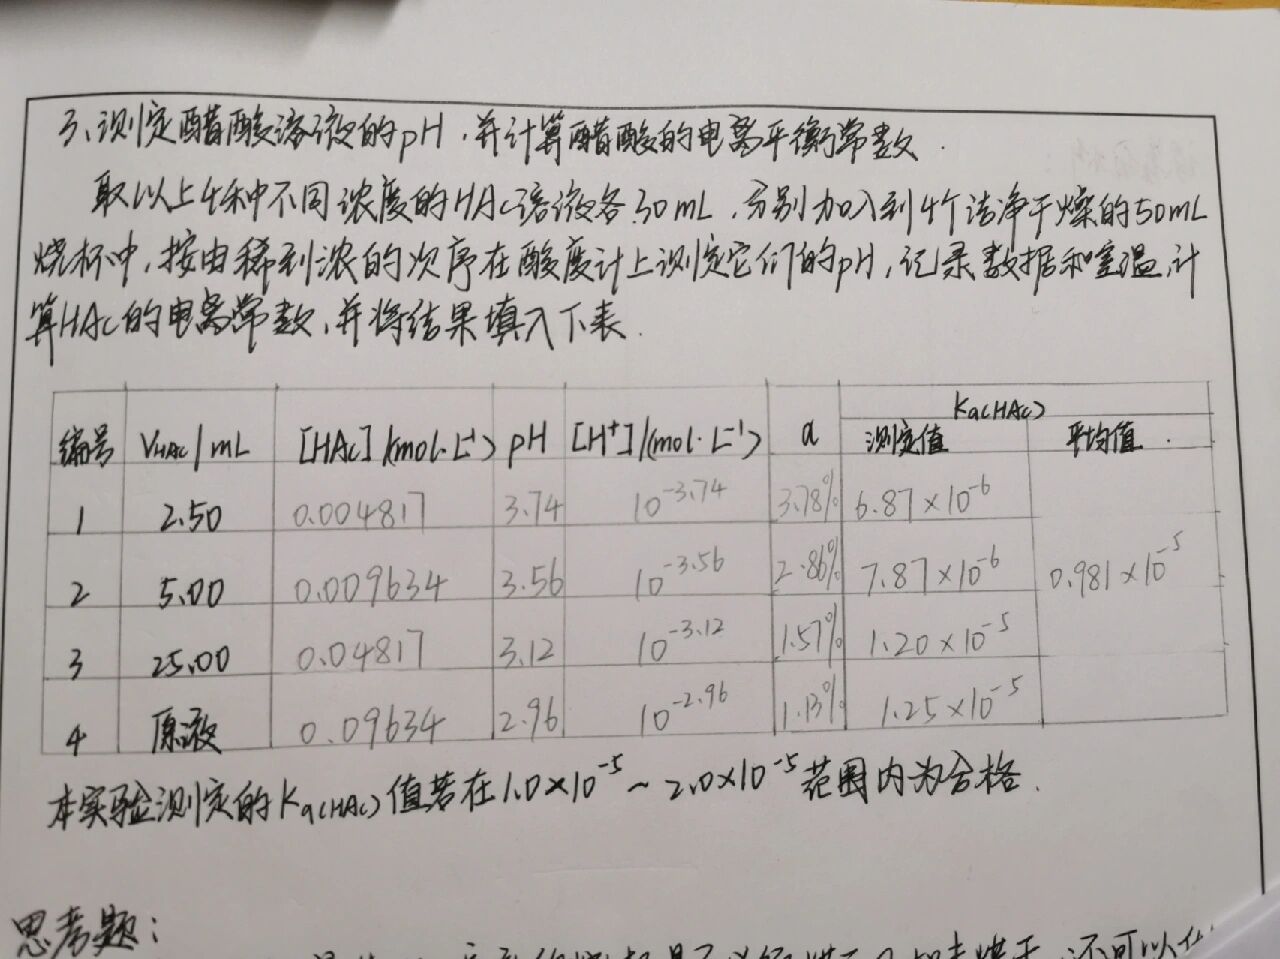 3、测定醋酸溶液的pH，并计算醋酸的电离平衡常数.
取以上4种中不同浓度的HAc溶液各30mL，分别加入到4个洁净干燥的50mL
烧杯中，按由稀到浓的次序在酸度计上测定它们的pH，记录数据和室温，计
算HAc的电离常数，并将结果填入下表.
编号 VHAc/mL [HAc]/(mol·L⁻¹) pH [H⁺]/(mol·L⁻¹) α Ka(HAc)
测定值 平均值
1 2.50 0.004817 3.74 10⁻³·⁷⁴ 3.78% 6.87×10⁻⁶
2 5.00 0.009634 3.56 10⁻³·⁵⁶ 2.86% 7.87×10⁻⁶ 0.981×10⁻⁵
3 25.00 0.04817 3.12 10⁻³·¹² 1.57% 1.20×10⁻⁵
4 原液 0.09634 2.96 10⁻²·⁹⁶ 1.13% 1.25×10⁻⁵
本实验测定的Ka(HAc)值若在1.0×10⁻⁵~2.0×10⁻⁵范围内为合格.
思考题：